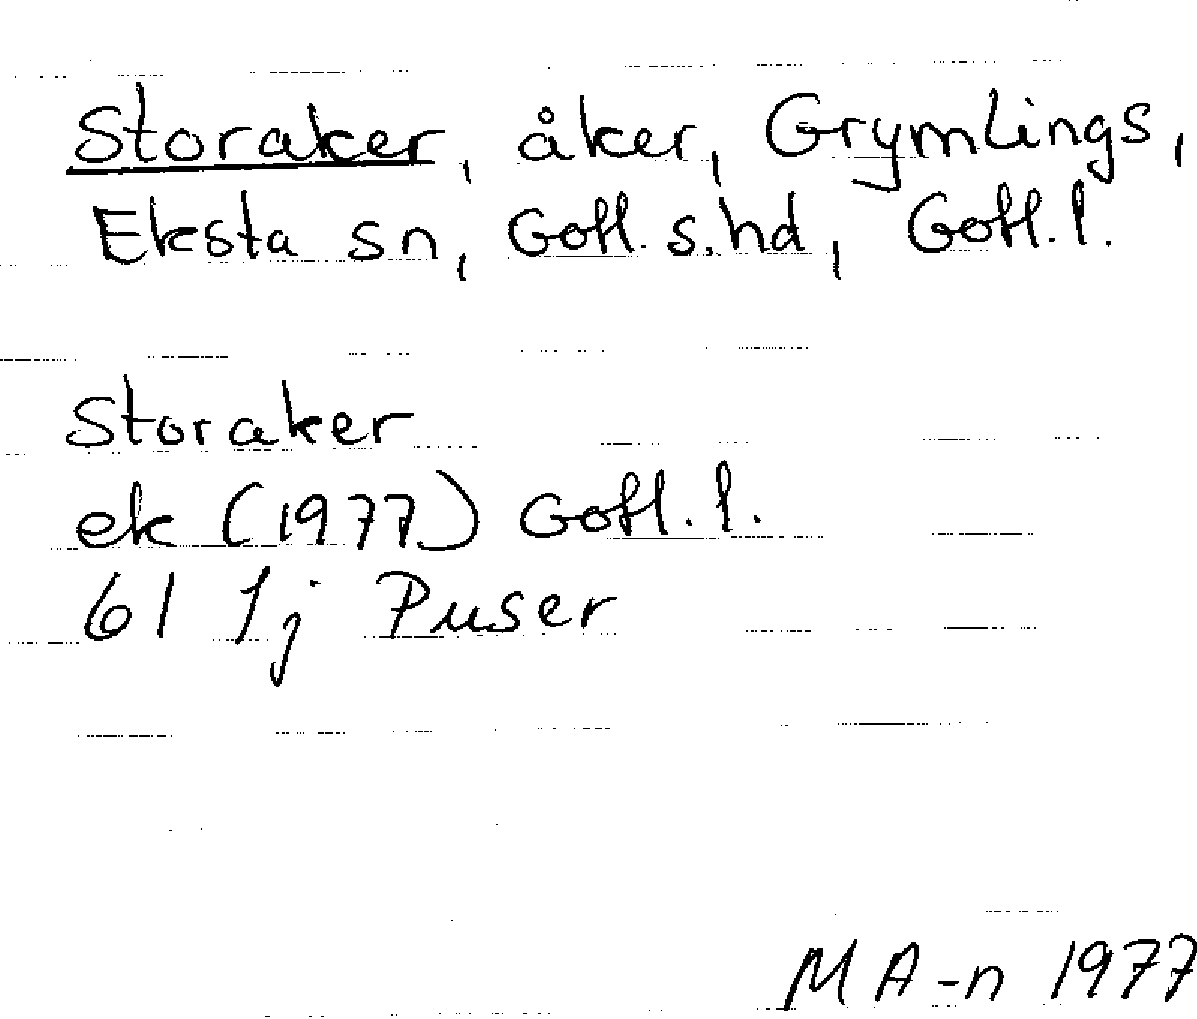 Storaker, åker, Grymlings,
Eksta sn, Gotl. s. hd, Gotl. l.
Storaker
ek (1977) Gotl. l.
61 1j Puser
MA-n 1977